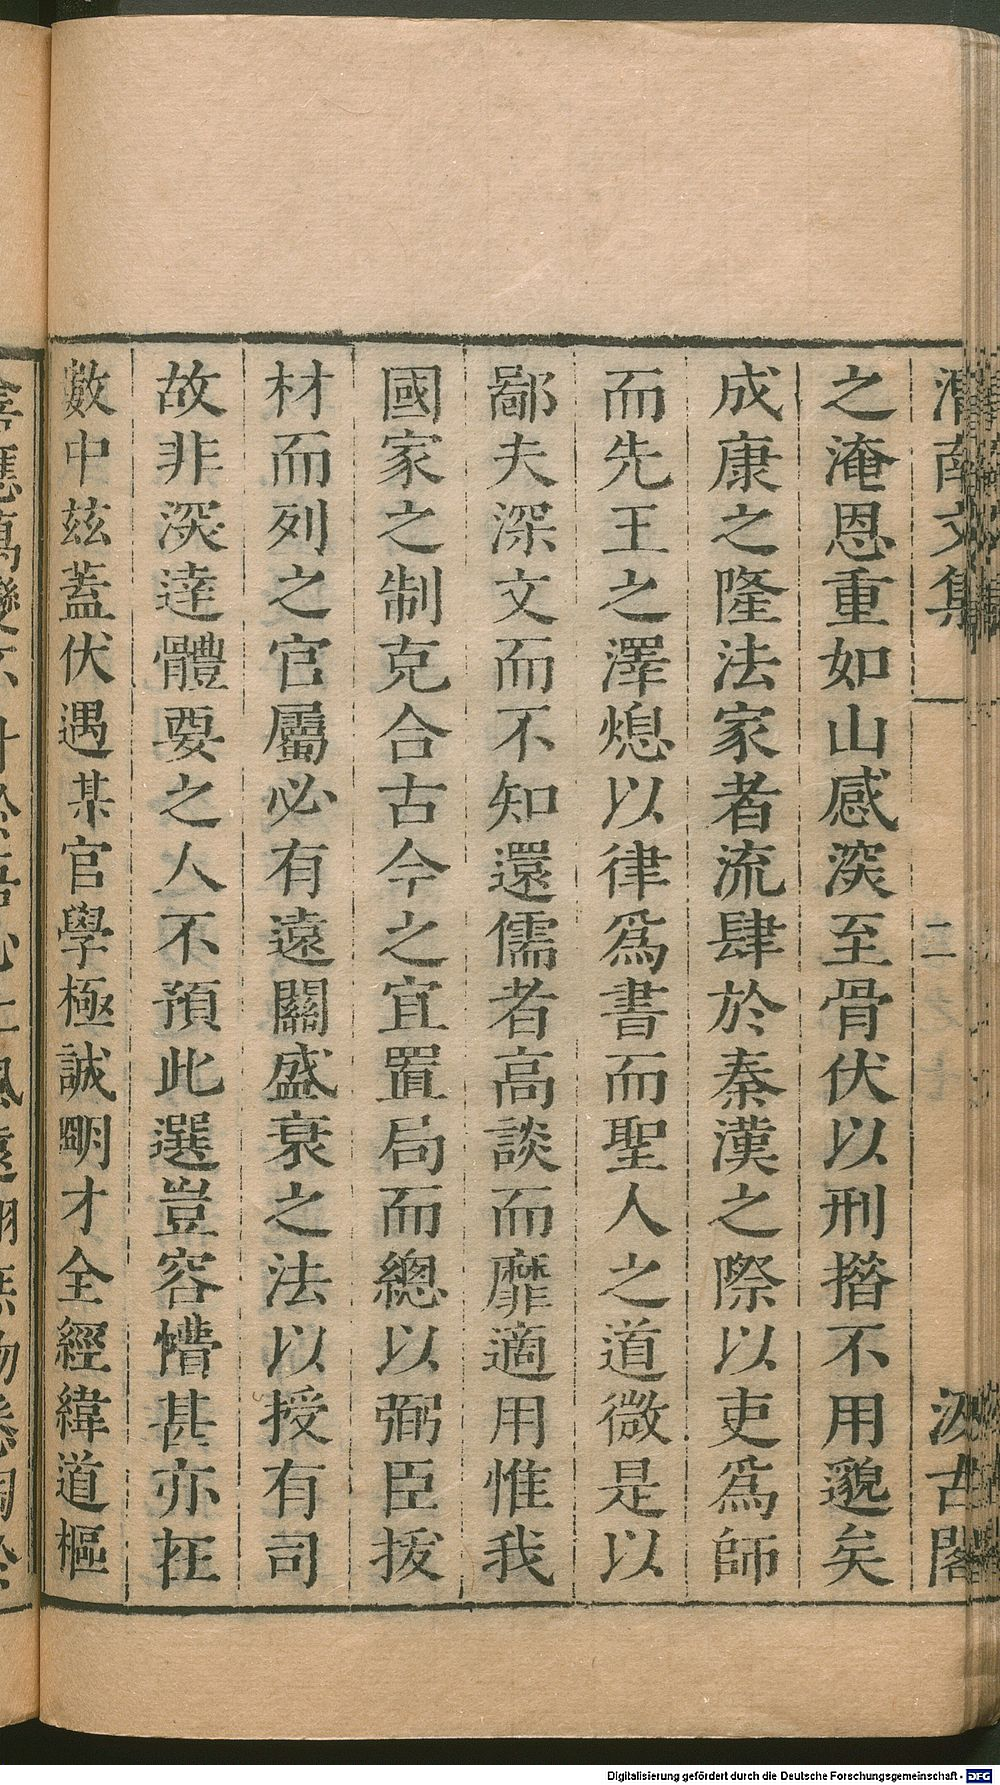 渭南文集 二 汲古閣
之淹恩重如山感深至骨伏以刑措不用邈矣
成康之隆法家者流肆於秦漢之際以吏爲師
而先王之澤熄以律爲書而聖人之道微是以
鄙夫深文而不知還儒者高談而靡適用惟我
國家之制克合古今之宜置局而總以弼臣拔
材而列之官屬必有遠關盛衰之法以授有司
故非深達體要之人不預此選豈容懵甚亦在
數中兹蓋伏遇某官學極誠明才全經緯道樞
Digitalisierung gefördert durch die Deutsche Forschungsgemeinschaft - DFG